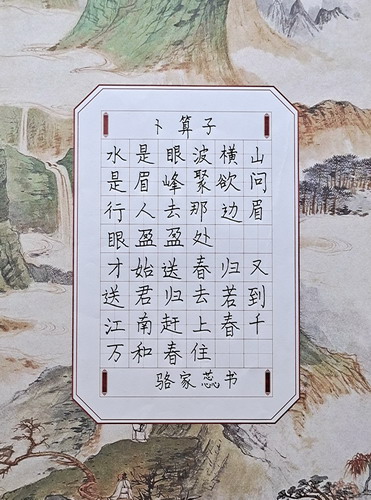 卜算子
水是眼波横山
是眉峰聚欲问
行人去那边眉
眼盈盈处
才始送春归又
送君归去若到
江南赶上春千
万和春住
骆家蕊书